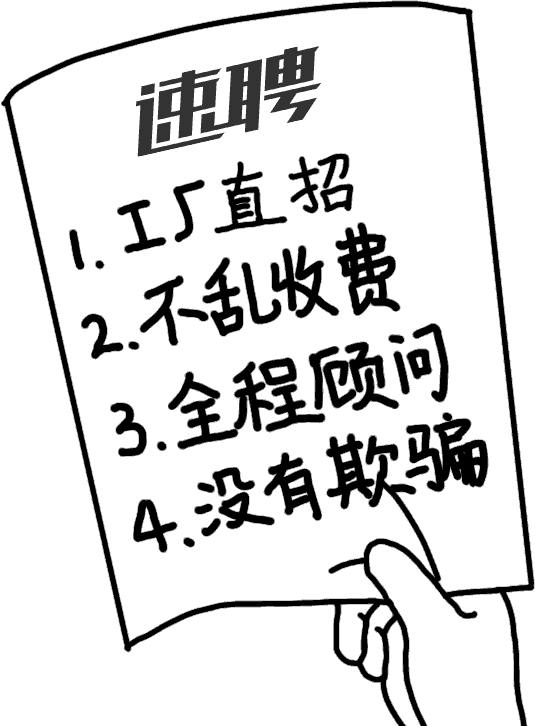 速聘
1.工厂直招
2.不乱收费
3.全程顾问
4.没有欺骗